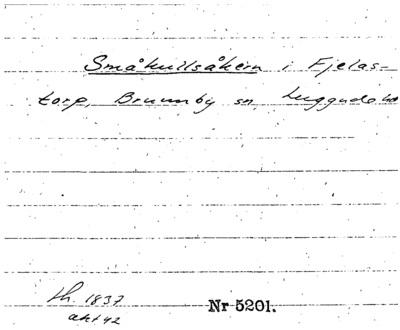 Småkullsåkern i Fjelas-
torp, Brunnby sn, Luggude hd
th. 1837
akt 42
Nr 5201.